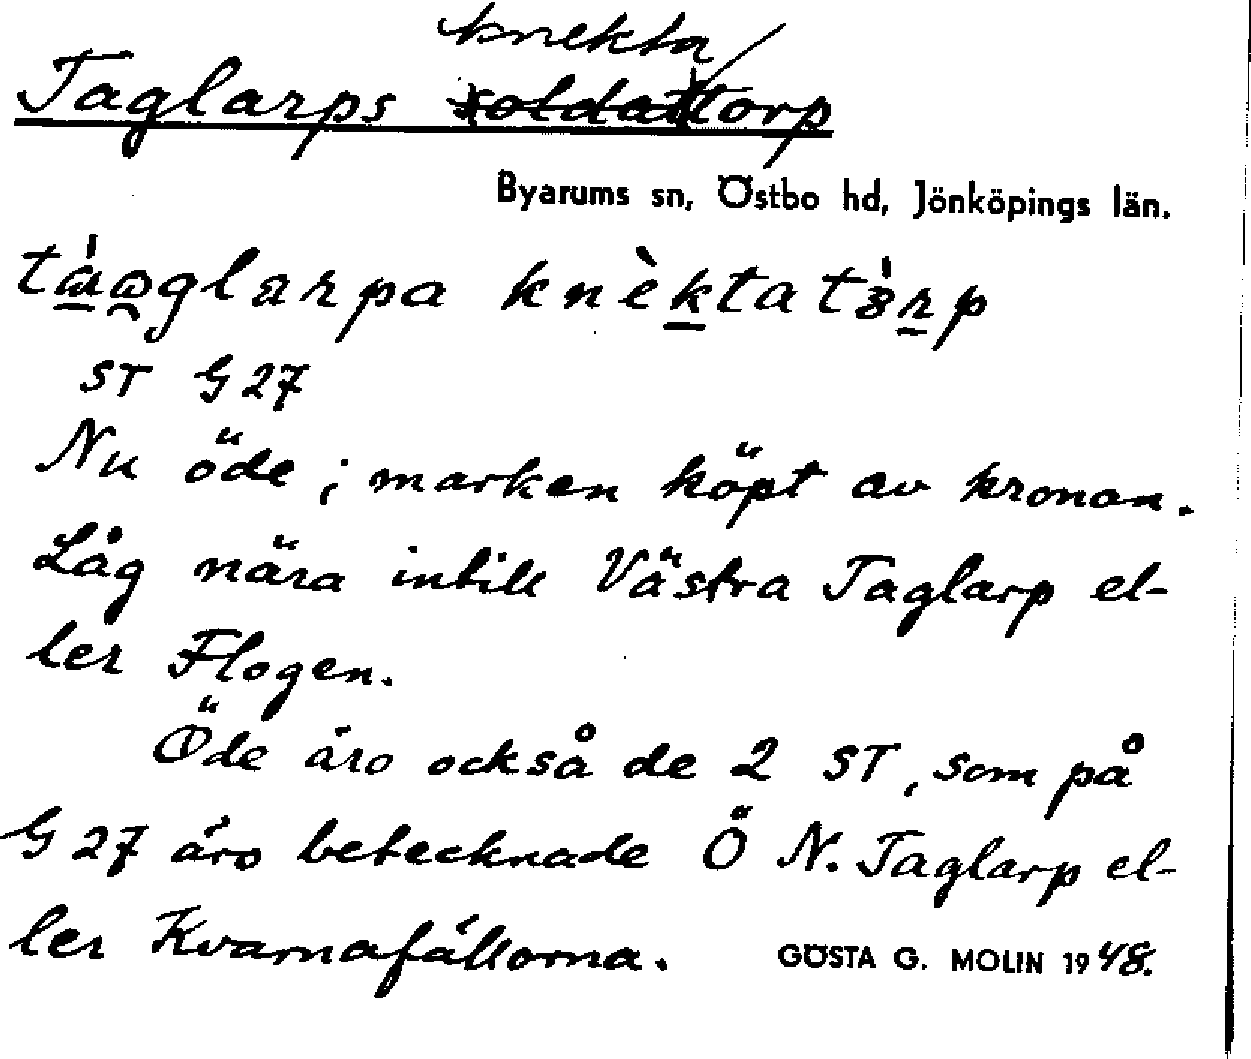 knekta/
Taglarps soldattorp
Byarums sn, Östbo hd, Jönköpings län.
knèktatòrp
ST G 27
Nu öde; marken köpt av kronan.
Låg nära intill Västra Taglarp el-
ler Flogen.
Öde äro också de 2 ST, som på
G 27 äro betecknade Ö N. Taglarp el-
ler Kvarnafällorna. GÖSTA G. MOLIN 1948.